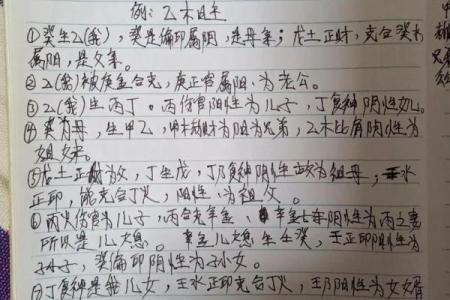 例：乙木日主
①癸生乙(我)，癸是偏印属阴，是母亲；戊土正财，克合癸为
属阳，是父亲。
②乙(我)被庚金合克，庚正官属阳，为老公。
③乙(我)生丙丁。丙伤官阳性为儿子，丁食神阴性女儿。
④癸为母，生甲乙，甲木劫财为阳为兄弟，乙木比肩阴性为
姐妹。
⑤戊土正财为父，丁生戊，丁食神阴性为祖母，水
正印，能克合丁火，阳性为祖父。
⑥丙火伤官为儿子，丙合克辛金，辛金七杀阴性为丙之妻
所以是儿媳。辛金儿媳生壬癸，壬正印阳性为
孙子，癸偏印阴性为孙女。
⑦丁食神是我儿女，壬水正印克合丁火，壬阳性为女婿